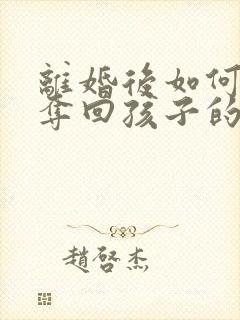 離婚後如何
奪回孩子的
趙啓杰